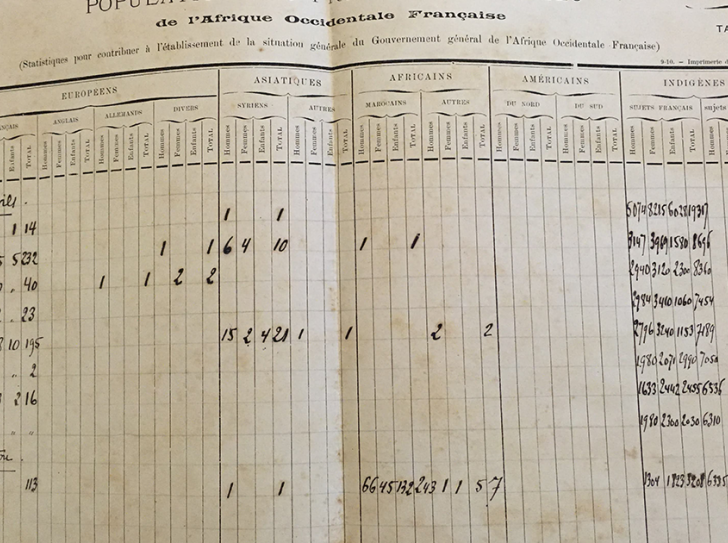 de l'Afrique Occidentale Française
(Statistiques pour contribuer à l'établissement de la situation générale du Gouvernement général de l'Afrique Occidentale Française)
9-10. — Imprimerie
EUROPÉENS ASIATIQUES AFRICAINS AMÉRICAINS INDIGÈNES
ANGLAIS ALLEMANDS DIVERS SYRIENS AUTRES MAROCAINS AUTRES DU NORD DU SUD SUJETS FRANÇAIS sujets
Enfants TOTAL Hommes Femmes Enfants TOTAL Hommes Femmes Enfants TOTAL Hommes Femmes Enfants TOTAL Hommes Femmes Enfants TOTAL Hommes Femmes Enfants TOTAL Hommes Femmes Enfants TOTAL Hommes Femmes Enfants TOTAL Hommes Femmes Enfants TOTAL Hommes Femmes Enfants TOTAL Hommes Femmes Enfants TOTAL Hommes
1 14 1 1 6074 8215 5028 19317
5 232 1 1 6 4 10 1 1 3147 3969 1580 8696
40 1 1 2 2 2940 3120 2300 8360
23 2984 3410 1060 7454
10 195 15 2 4 21 1 1 2 2 2796 3240 1153 7189
2 1980 2071 2990
2 16 1633 2442 2455
1980 2300 2030 6310
113 1 1 66 45 132 243 1 1 5 7 1304 1823 3208 6335